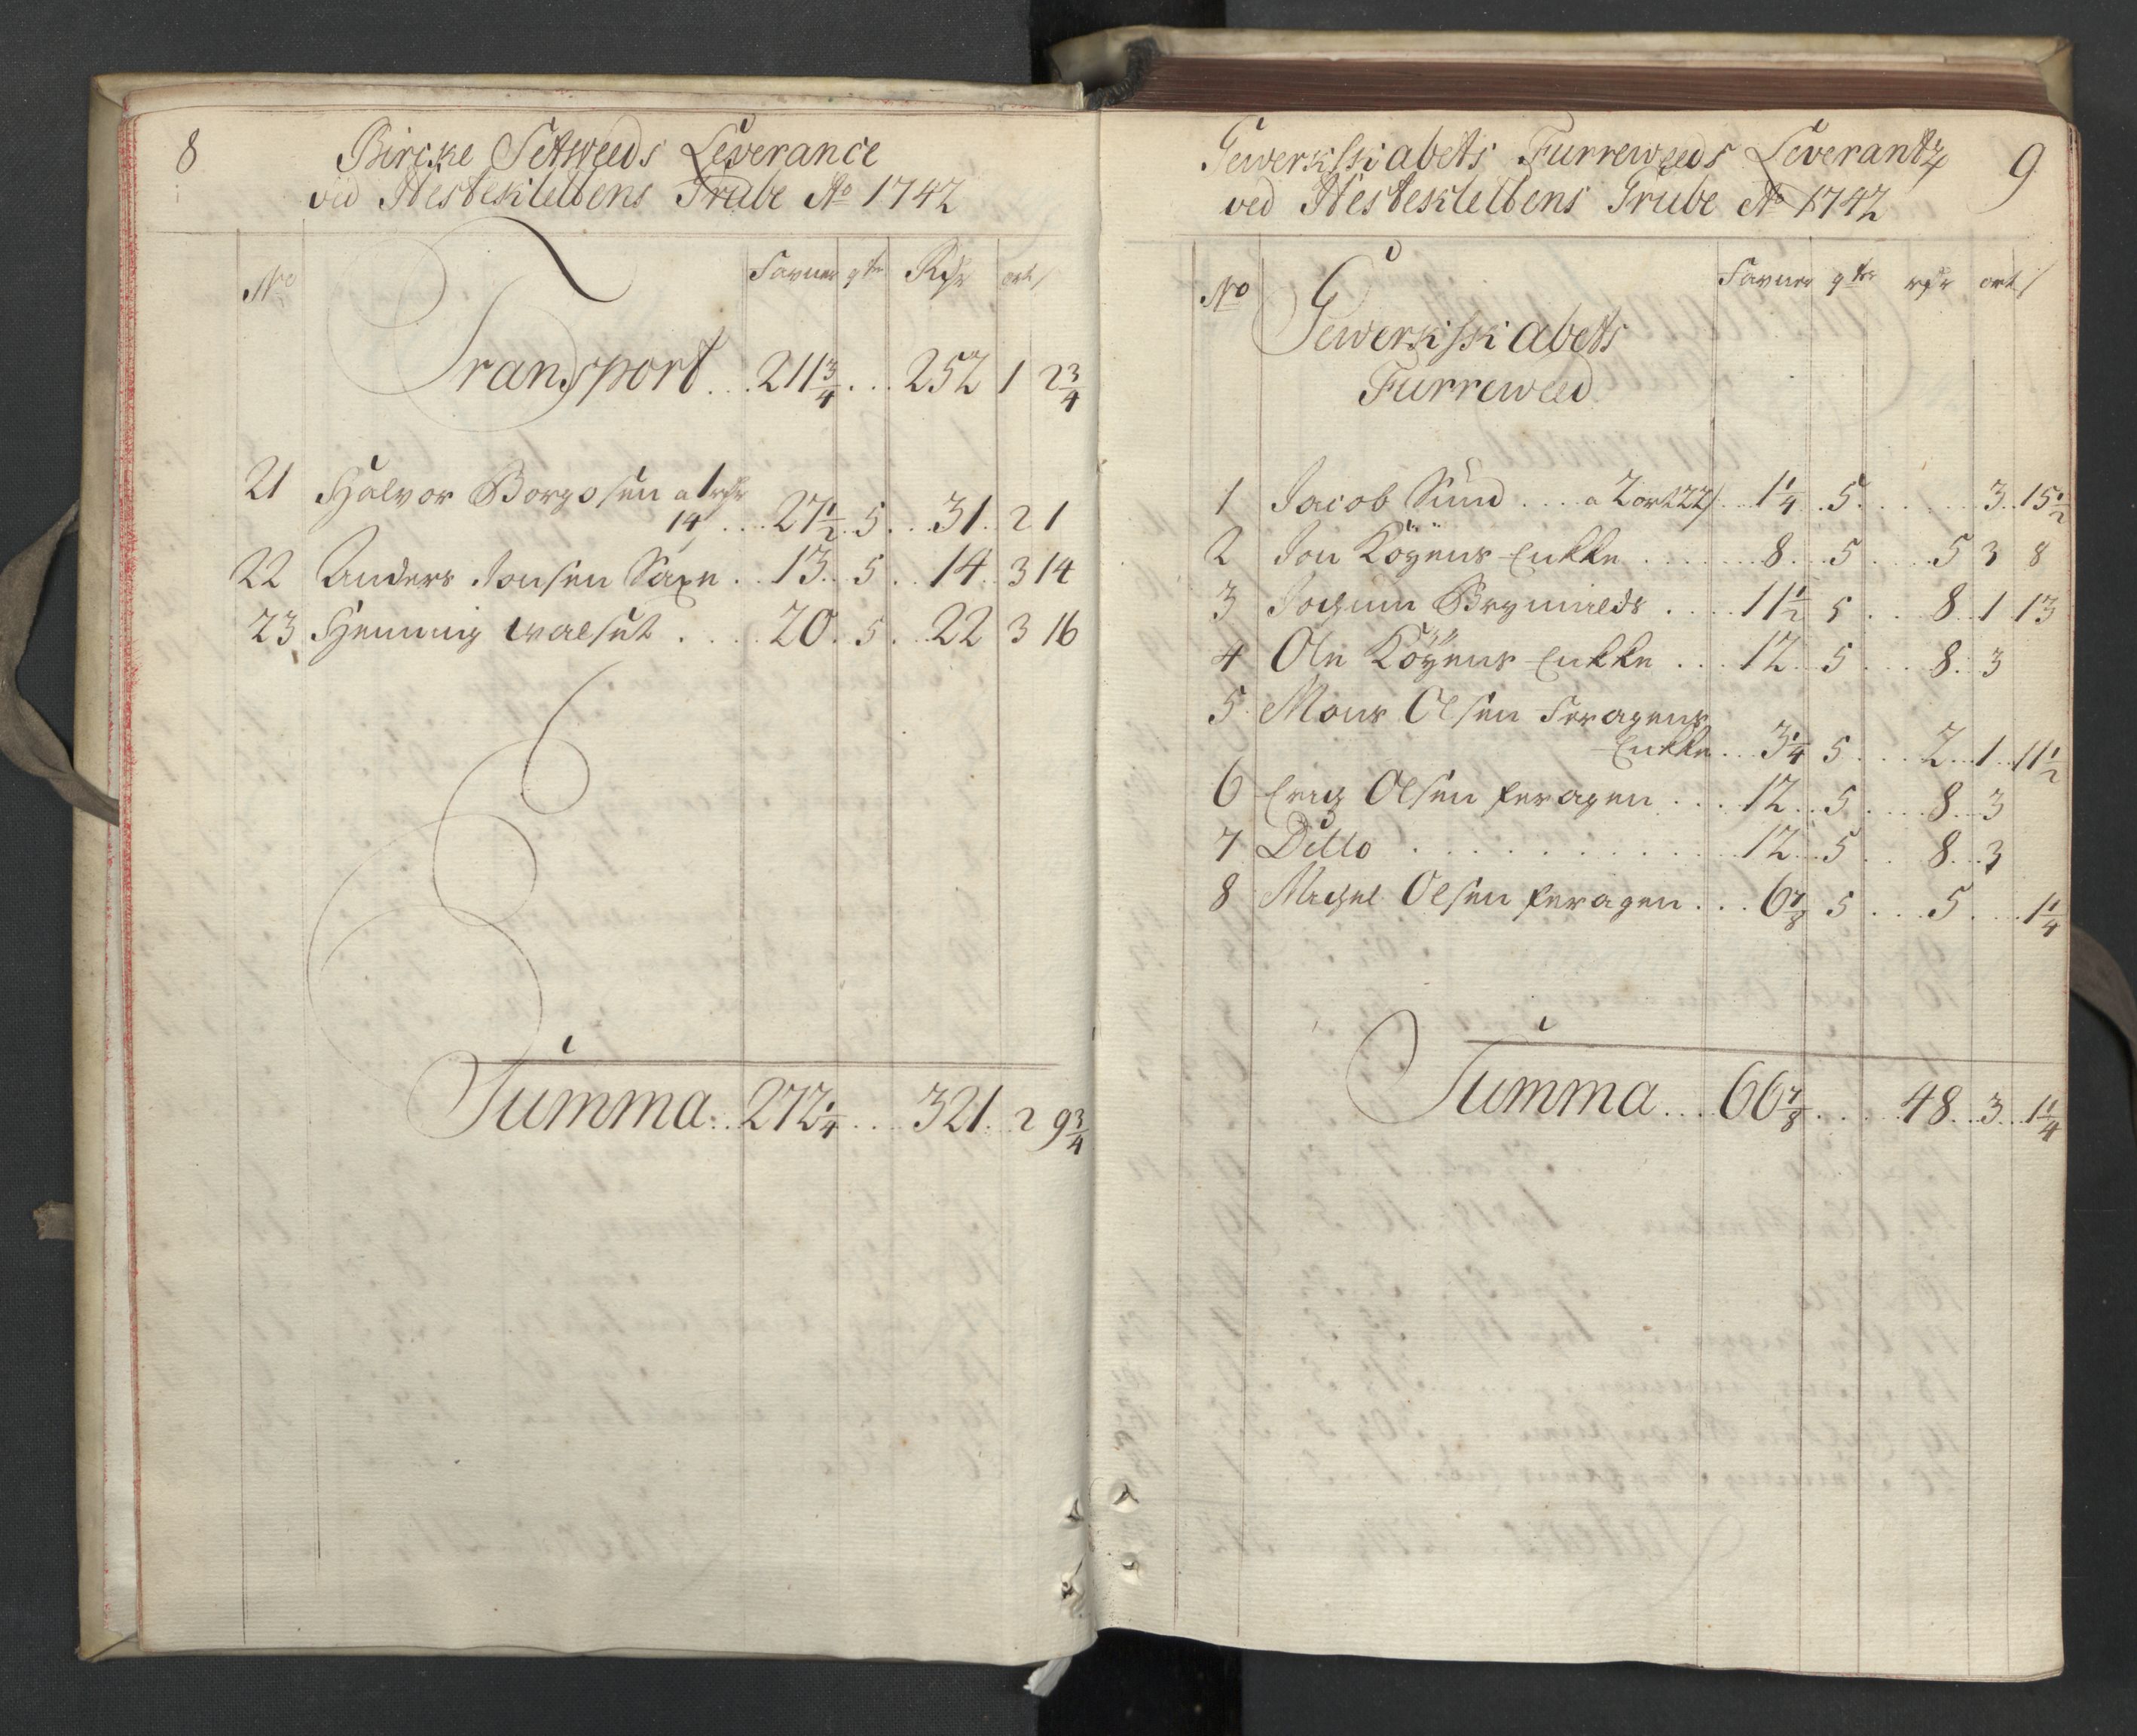 8
Bircke Setweeds Leverance
ved Hesteklettens Grube Ao 1742
No Favner qtr Rdr ort s
Transport . . . 211 3/4 . . . 252 1 2 3/4
21 Halvor Borgosen a 1 rdr
14 . . . 27 1/2 . 5 . . 31 . 2 1
22 Anders Jonsen Saxe . . 13 . . 5 . . 14 . . 3 14
23 Henning Walset . . . . 20 . 5 . . 22 3 16
Summa . . . 272 1/4 . . . 321 . 2 9 3/4
9
Gewerkskabets Furreweeds Leverantz
ved Hesteklettens Grube Ao 1742
No Favner qter rdr ort s
Gewerkskabets
Furreweed
1 Jacob Sund . . . a 2 ort 22 s . . 1 1/4 . 5 . . . . . . 3 . 15 1/2
2 Jon Köyens Enkke . . . . . . 8 . . . 5 . . . . 5 3 8
3 Jochum Brynilds . . . . 11 1/2 5 . . . 8 . 1 13
4 Ole Köyens Enkke . . . 12 . . 5 . . . 8 . 3
5 Mons Olsen Feragens
Enkke . . . 3 1/4 5 . . . 2 . . 1 . . 11 1/2
6 Erig Olsen feragen . . . 12 . . 5 . . . 8 . . 3
7 Ditto . . . . . . . . . . 12 . . 5 . . . 8 . . . 3
8 Michel Olsen feragen . . . 6 7/8 5 . . . 5 . . . 1 1/4
Summa . . . 66 7/8 . . . . 48 . . 3 . . 1 1/4